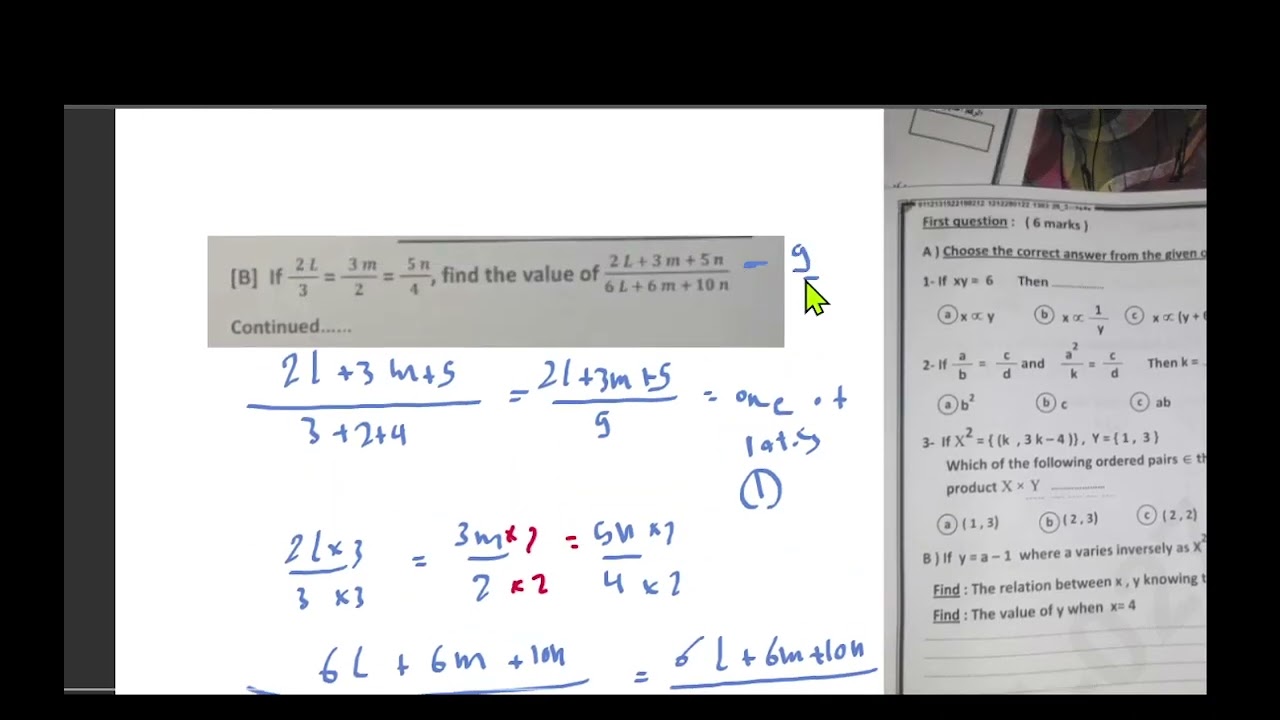 [B] If 2L/3 = 3m/2 = 5n/4, find the value of (2L+3m+5n)/(6L+6m+10n) - 9
Continued......
2l+3m+5/3+2+4 = 2l+3m+5/9 = one of
(1)
2l×3/3×3 = 3m×2/2×2 = 5n×2/4×2
6l+6m+10n = 6l+6m+10n
First question : ( 6 marks )
A ) Choose the correct answer from the given
1- If xy = 6 Then ............
(a) x ∝ y (b) x ∝ 1/y (c) x ∝ (y +
2- If a/b = c/d and a²/k = c/d Then k =
(a) b² (b) c (c) ab
3- If X² = {(k , 3k – 4)} , Y = {1 , 3}
Which of the following ordered pairs ∈
product X × Y ............
(a) (1 , 3) (b) (2 , 3) (c) (2 , 2)
B ) If y = a – 1 where a varies inversely as X²
Find : The relation between x , y knowing
Find : The value of y when x= 4